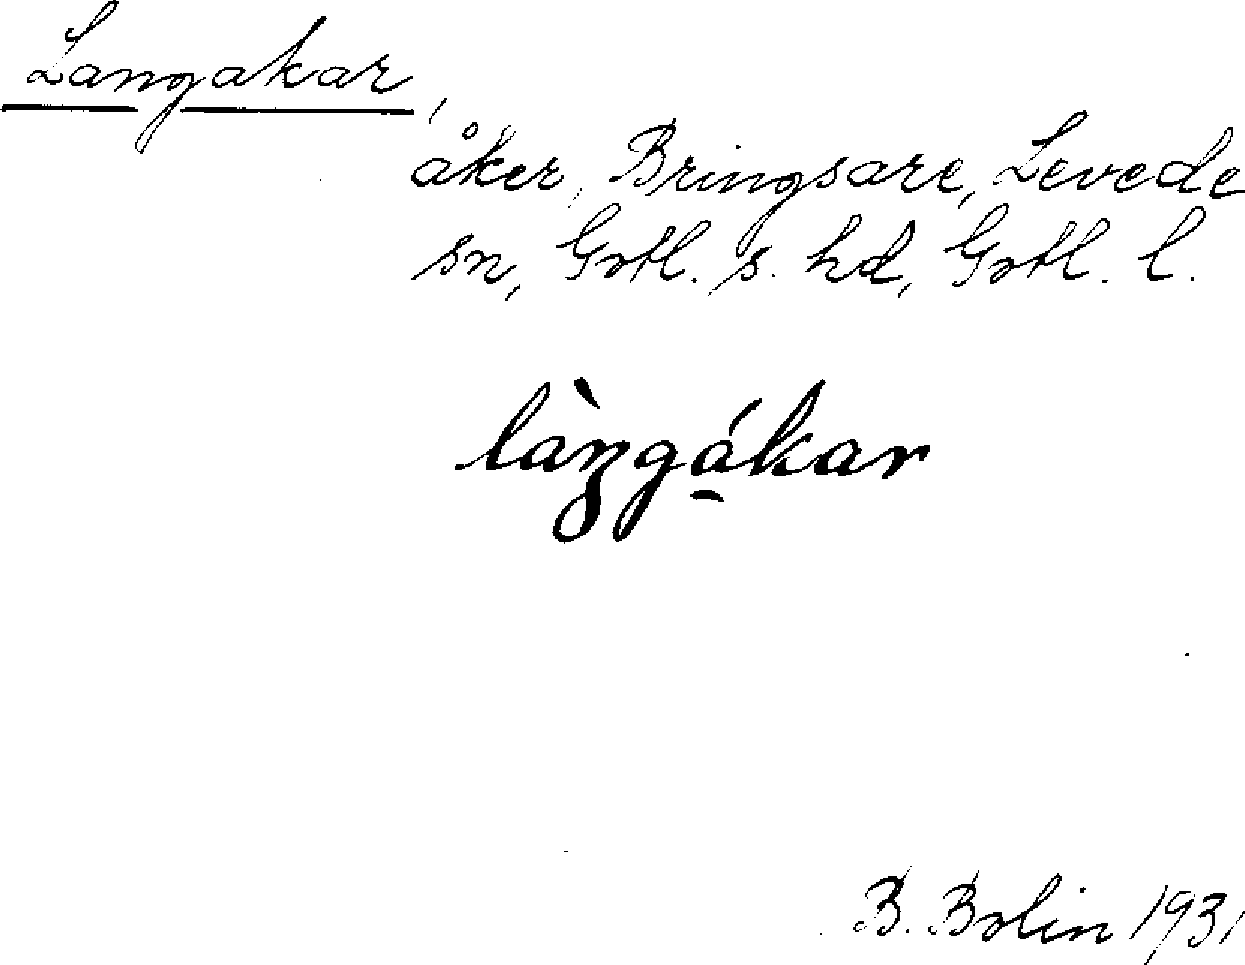 Langakar,
åker, Bringsare, Levede
sn, Gotl. s. hd, Gotl. l.
làŋgá̱kar
B. Bolin 1931